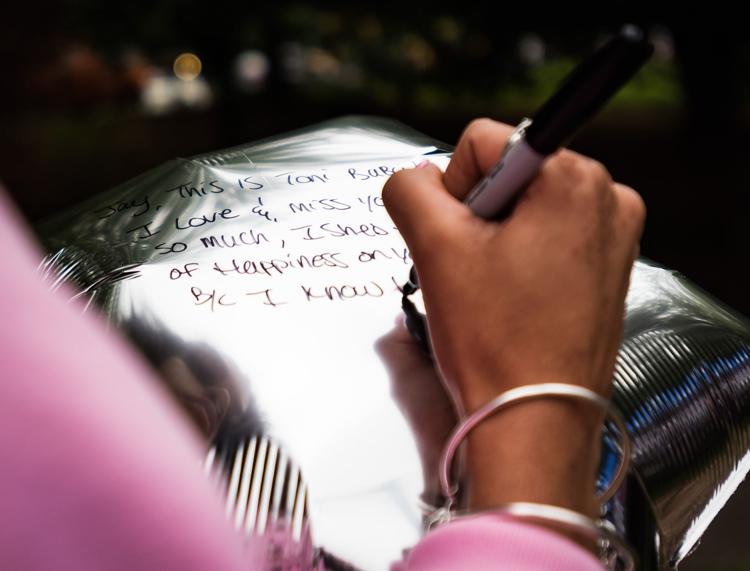 Jay, This is Toni
I Love & miss
so much, I Shed
of Happiness on
B/c I know